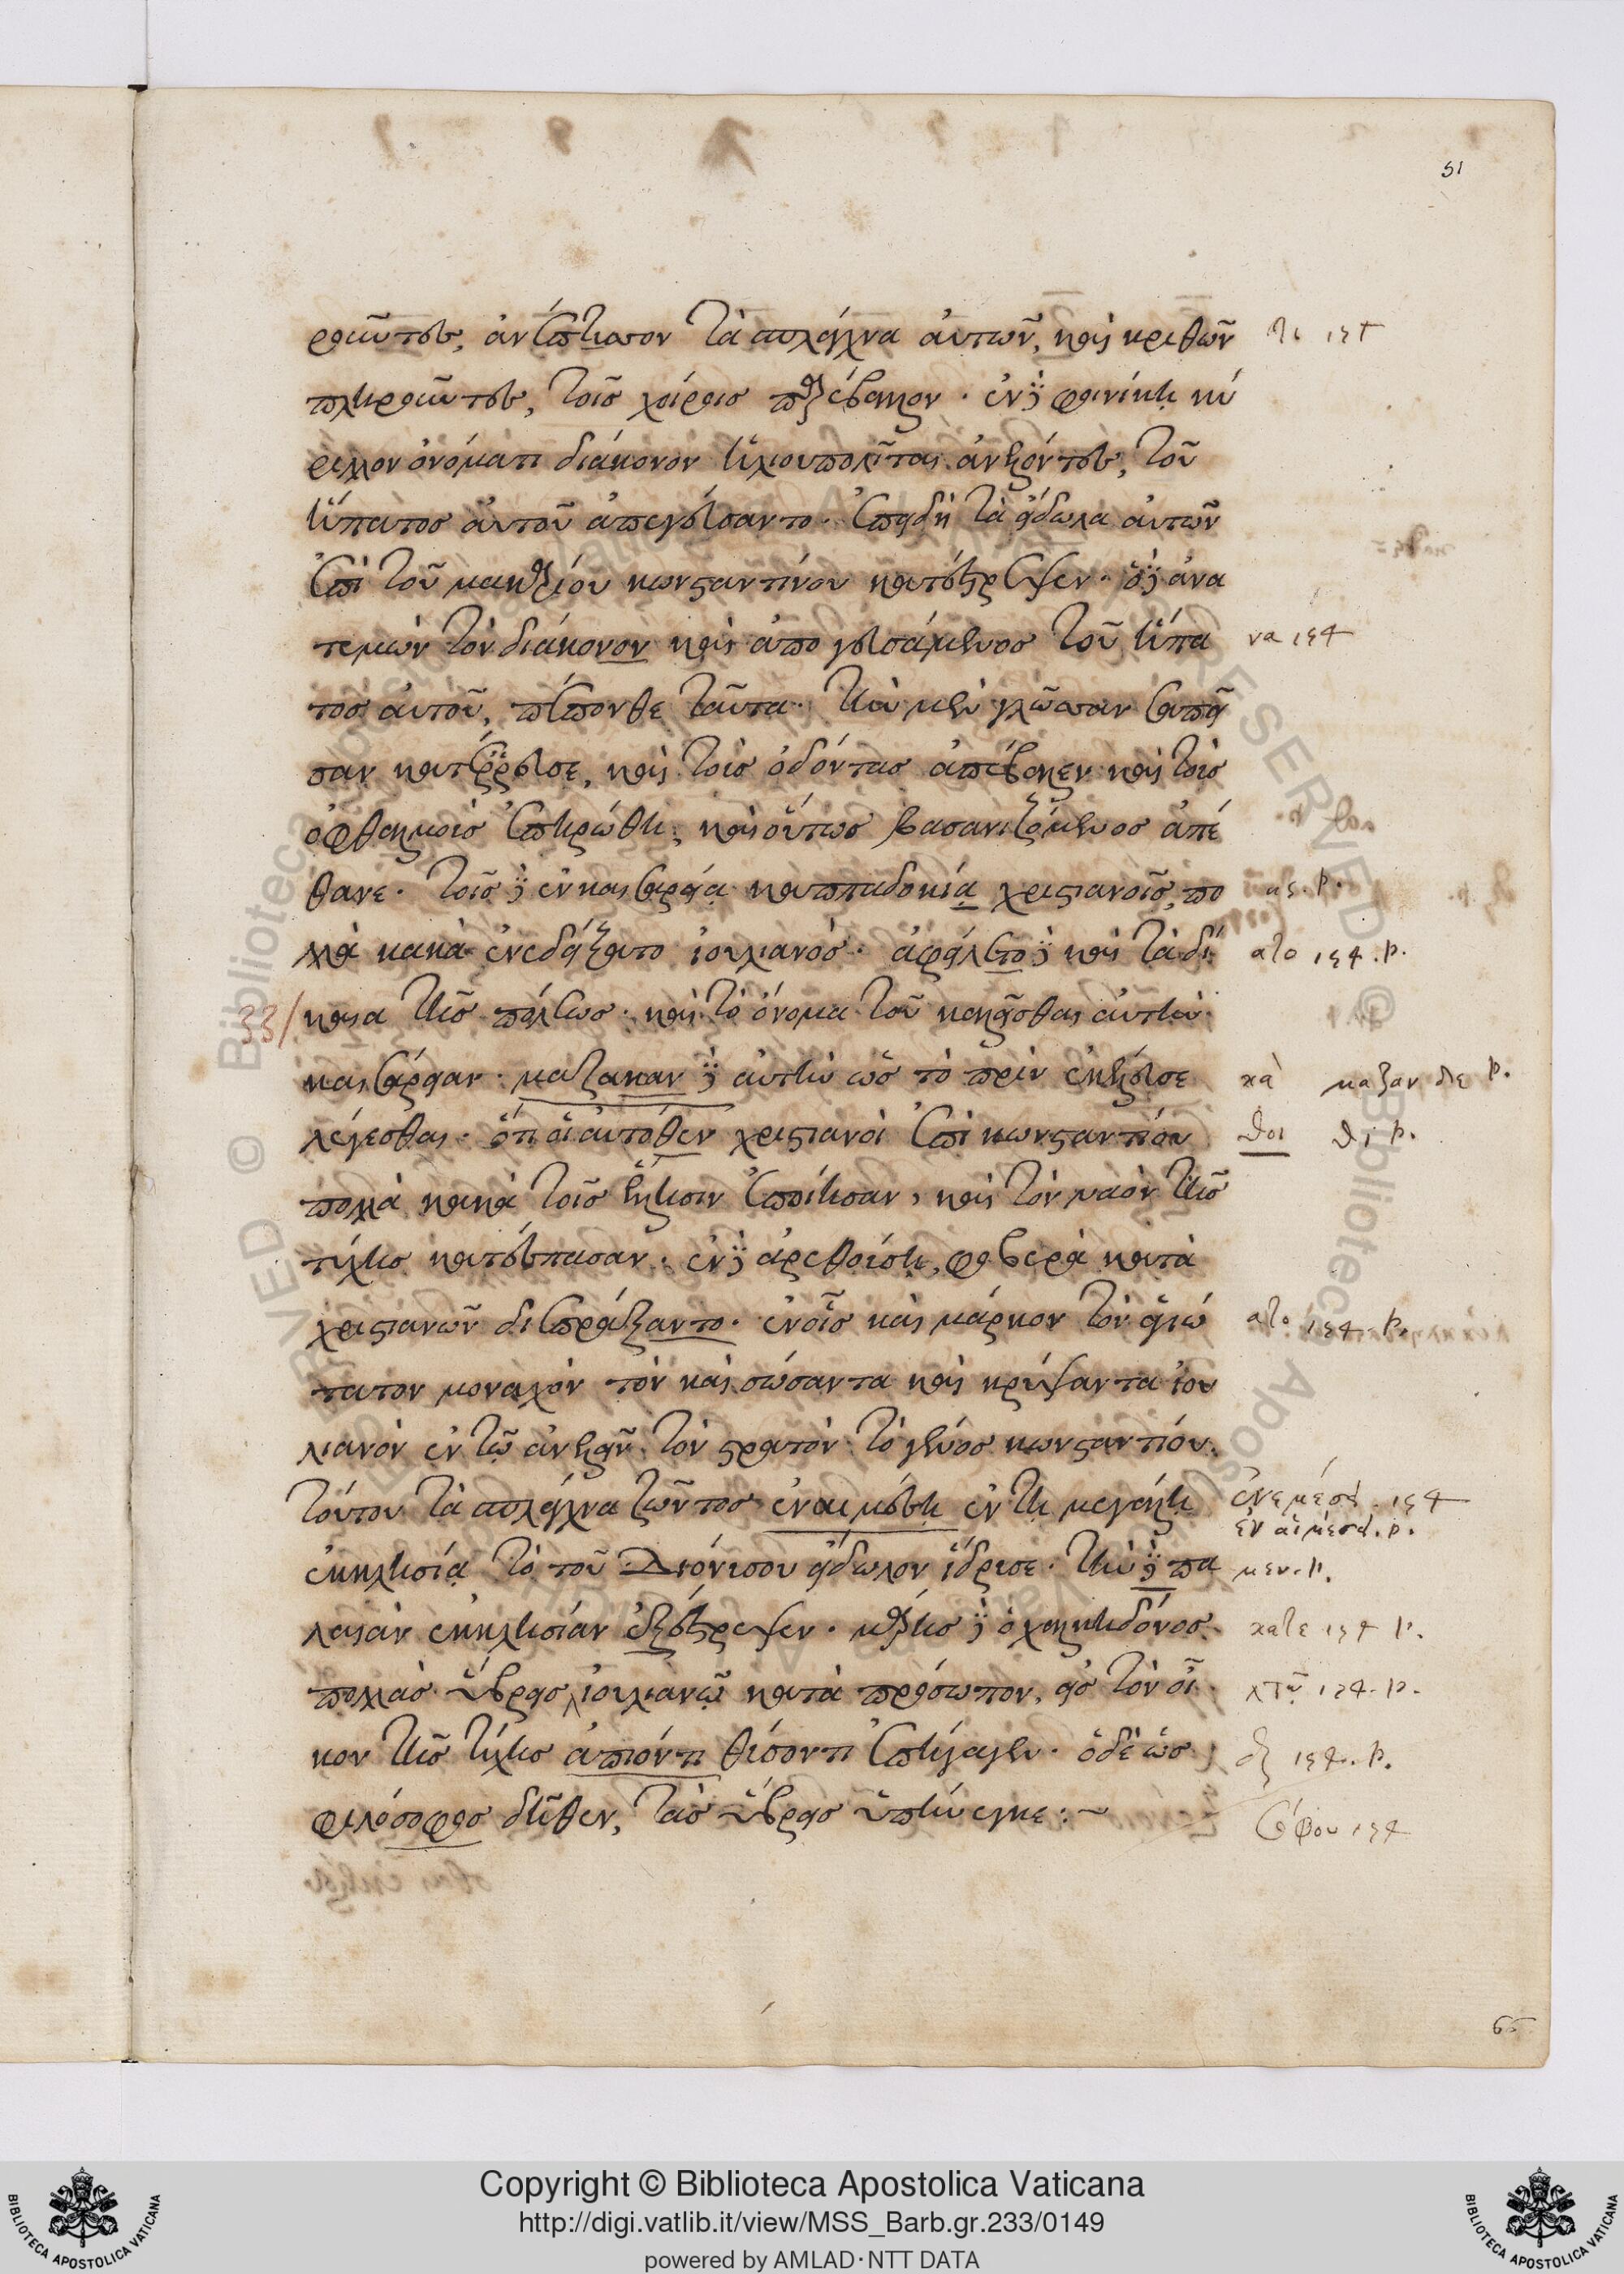 51
ροῦντες, ἀνέπτυσσον τὰ σπλάγχνα αὐτῶν, καὶ κριθῶν
πληροῦντες, τοῖς χοίροις παρέβαλλον. ἐν δὲ φοινίκῃ κύ
ριλλον ὀνόματι διάκονον ἡλιουπολῖται ἀνελόντες, τοῦ
ἥπατος αὐτοῦ ἀπεγεύσαντο. ἐπειδὴ τὰ εἴδωλα αὐτῶν
ἐπὶ τοῦ μακαρίου κωνσταντίνου κατέστρεψεν. ὁ δὲ ἀνα
τεμὼν τὸν διάκονον καὶ ἀπογευσάμενος τοῦ ἥπα
τος αὐτοῦ, πέπονθε ταῦτα. τὴν μὲν γλῶσσαν σαπεῖ
σαν κατέρρευσε, καὶ τοὺς ὀδόντας ἀπέβαλεν καὶ τοὺς
ὀφθαλμοὺς ἐπηρώθη, καὶ οὕτως βασανιζόμενος ἀπέ
θανε. τοῖς δὲ ἐν καισαρείᾳ καππαδοκίᾳ χριστιανοῖς, πο
λλὰ κακὰ ἐνεδείξατο ἰουλιανός. ἀφείλετο δὲ καὶ τὰ δί
33/ καια τῆς πόλεως. καὶ τὸ ὄνομα τοῦ καλεῖσθαι αὐτὴν
καισάρειαν. μαζακαν δὲ αὐτὴν ὡς τὸ πρὶν ἐκέλευσε
λέγεσθαι. ὅτι οἱ αὐτόθεν χριστιανοὶ ἐπὶ κωνσταντίου
πολλὰ κακὰ τοῖς ἕλλησιν ἐποίησαν, καὶ τὸν ναὸν τῆς
τύχης κατέσπασαν. ἐν δὲ ἀρεθούσῃ, φοβερὰ κατὰ
χριστιανῶν διεπράξαντο. ἐν οἷς καὶ μάρκον τὸν ἁγιώ
τατον μοναχὸν τὸν καὶ σώσαντα καὶ κρύψαντα ἰου
λιανὸν ἐν τῷ ἀνελεῖν τὸν στρατὸν τὸ γένος κωνσταντίου.
τούτου τὰ σπλάγχνα ζῶντος ἐν αιμέσῃ ἐν τῇ μεγάλῃ
ἐκκλησίᾳ τὸ τοῦ Διόνισου εἴδωλον ἵδρισε. τὴν δὲ πα
λαιὰν ἐκκλησίαν ἐξέστρεψεν. μάρης δὲ ὁ χαλκηδόνος
πολλὰς ὕβρεις ἰουλιανῷ κατὰ πρόσωπον, εἰς τὸν οἶ
κον τῆς τύχης ἀπιόντι θύσοντι ἐπήγαγεν. ὁ δὲ ὡς
φιλόσοφος δῆθεν, τὰς ὕβρεις ὑπήνεγκε:~
να
ας. p.
ατο p.
χὰ μαζαν δε p.
θοι θι p.
ατο p.
ἐνεμέσῃ
ἐν αἱμέσῃ. p.
μεν. p.
κατε p.
σόφου
65
Copyright © Biblioteca Apostolica Vaticana
http://digi.vatlib.it/view/MSS_Barb.gr.233/0149
powered by AMLAD·NTT DATA
BIBLIOTECA APOSTOLICA VATICANA
BIBLIOTECA APOSTOLICA VATICANA